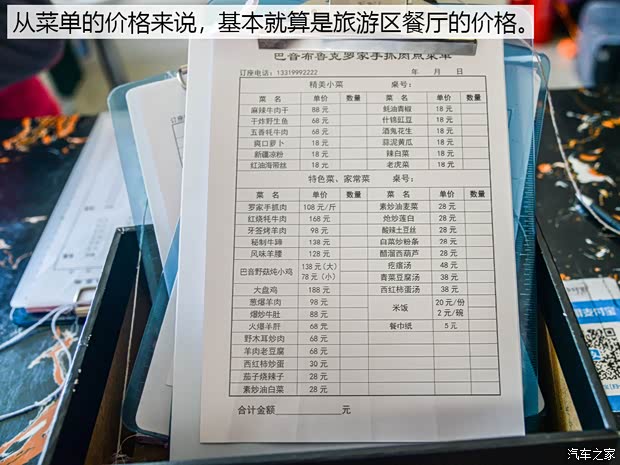 从菜单的价格来说，基本就算是旅游区餐厅的价格。
巴音布鲁克罗家手抓肉点菜单
订座电话：13319992222 年 月 日
精美小菜 桌号：
菜 名 单价 数量 菜 名 单价 数量
麻辣牛肉干 88 元 蚝油青椒 18 元
干炸野生鱼 68 元 什锦豇豆 18 元
五香牦牛肉 68 元 酒鬼花生 18 元
爽口萝卜 18 元 蒜泥黄瓜 18 元
新疆凉粉 18 元 辣白菜 18 元
红油海带丝 18 元 老虎菜 18 元
特色菜、家常菜 桌号：
菜 名 单价 数量 菜 名 单价 数量
罗家手抓肉 108 元/斤 素炒油麦菜 28 元
红烧牦牛肉 168 元 炝炒莲白 28 元
牙签烤羊肉 98 元 酸辣土豆丝 28 元
秘制牛蹄 138 元 白菜炒粉条 28 元
风味羊腰 128 元 醋溜西葫芦 28 元
巴音野菇炖小鸡 138 元（大） 疙瘩汤 48 元
78 元（小） 青菜豆腐汤 38 元
大盘鸡 188 元 西红柿蛋汤 38 元
葱爆羊肉 98 元 米饭 20 元/份
爆炒牛肚 88 元 2 元/碗
火爆羊肝 68 元 餐巾纸 5 元
野木耳炒肉 68 元
羊肉老豆腐 68 元
西红柿炒蛋 30 元
茄子烧辣子 28 元
素炒油白菜 28 元
合计金额 元
汽车之家